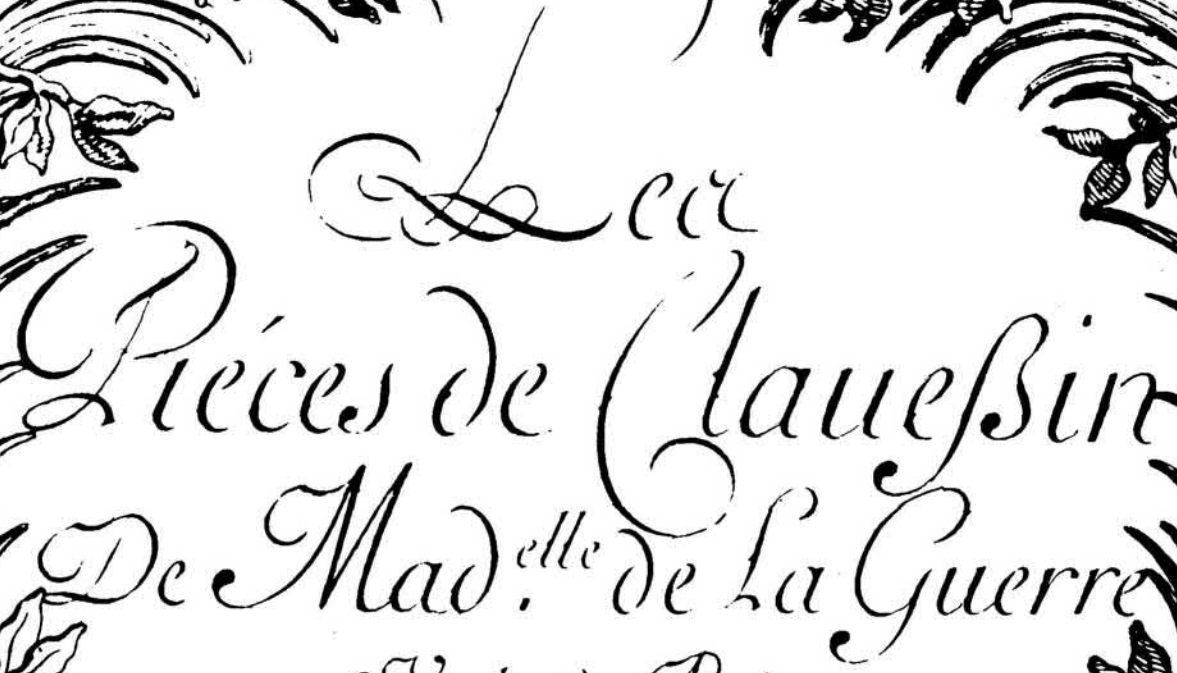 Les
Piéces de Claueßin
De Mad.elle de La Guerre